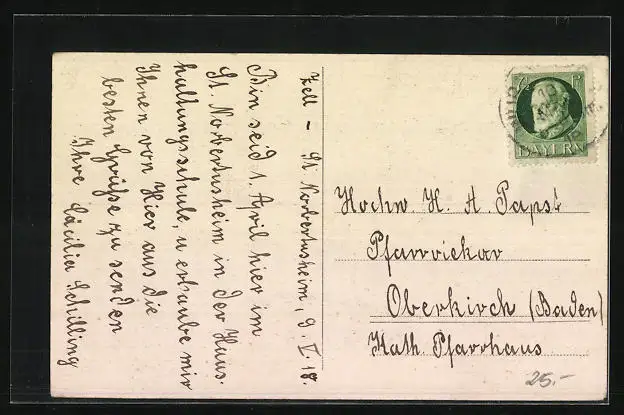 Zell – St. Norbertusheim, 9. V. 18.
Bin seid 1. April hier im
St. Norbertusheim in der Haus-
haltungsschule, u erlaube mir
Ihnen von Hier aus die
besten Grüße zu senden
Ihre Cäcilia Schilling
BAYERN
Hochw. H. A. Papst
Pfarrvickar
Oberkirch (Baden)
Kath. Pfarrhaus
25.-